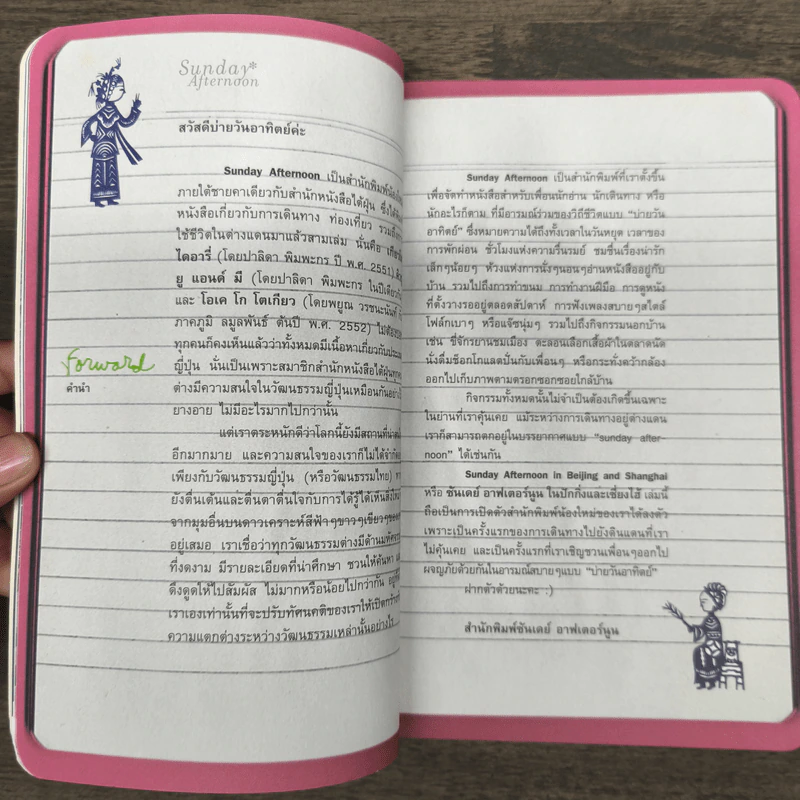 Sunday*
Afternoon
สวัสดีบ่ายวันอาทิตย์ค่ะ
Sunday Afternoon เป็นสำนักพิมพ์น้อง
ภายใต้ชายคาเดียวกับสำนักหนังสือไต้ฝุ่น ซึ่งได้
หนังสือเกี่ยวกับการเดินทาง ท่องเที่ยว รวมถึง
ใช้ชีวิตในต่างแดนมาแล้วสามเล่ม นั่นคือ
ไดอารี่ (โดยปาลิดา พิมพะกร ปี พ.ศ. 2551)
ยู แอนด์ มี (โดยปาลิดา พิมพะกร ในปีเดียวกัน
และ โอเค โก โตเกียว (โดยพยูณ วรชนะนันท์
ภาคภูมิ ลมูลพันธ์ ต้นปี พ.ศ. 2552)
ทุกคนก็คงเห็นแล้วว่าทั้งหมดมีเนื้อหาเกี่ยวกับ
ญี่ปุ่น นั่นเป็นเพราะสมาชิกสำนักหนังสือไต้ฝุ่น
ต่างมีความสนใจในวัฒนธรรมญี่ปุ่นเหมือนกันอย่าง
ยางอาย ไม่มีอะไรมากไปกว่านั้น
forward
คำนำ
แต่เราตระหนักดีว่าโลกนี้ยังมีสถานที่
อีกมากมาย และความสนใจของเราก็ไม่ได้
เพียงกับวัฒนธรรมญี่ปุ่น (หรือวัฒนธรรมไทย)
ยังตื่นเต้นและตื่นตาตื่นใจกับการได้รู้ได้เห็นสิ่ง
จากมุมอื่นบนดาวเคราะห์สีฟ้าๆขาวๆเขียวๆ
อยู่เสมอ เราเชื่อว่าทุกวัฒนธรรมต่างมีด้าน
ที่งดงาม มีรายละเอียดที่น่าศึกษา ชวนให้ค้นหา
ดึงดูดให้ไปสัมผัส ไม่มากหรือน้อยไปกว่ากัน
เราเองเท่านั้นที่จะปรับทัศนคติของเราให้เปิดกว้าง
ความแตกต่างระหว่างวัฒนธรรมเหล่านั้นอย่างไร
Sunday Afternoon เป็นสำนักพิมพ์ที่เราตั้งขึ้น
เพื่อจัดทำหนังสือสำหรับเพื่อนนักอ่าน นักเดินทาง หรือ
นักอะไรก็ตาม ที่มีอารมณ์ร่วมของวิถีชีวิตแบบ "บ่ายวัน
อาทิตย์" ซึ่งหมายความได้ถึงทั้งเวลาในวันหยุด เวลาของ
การพักผ่อน ชั่วโมงแห่งความรื่นรมย์ ชมชื่นเรื่องน่ารัก
เล็กๆน้อยๆ ห้วงแห่งการนั่งๆนอนๆอ่านหนังสืออยู่กับ
บ้าน รวมไปถึงการทำขนม การทำงานฝีมือ การดูหนัง
ที่ตั้งวางรออยู่ตลอดสัปดาห์ การฟังเพลงสบายๆสไตล์
โฟล์กเบาๆ หรือแจ๊ซนุ่มๆ รวมไปถึงกิจกรรมนอกบ้าน
เช่น ขี่จักรยานชมเมือง ตะลอนเลือกเสื้อผ้าในตลาดนัด
นั่งดื่มช็อกโกแลตปั่นกับเพื่อนๆ หรือกระทั่งคว้ากล้อง
ออกไปเก็บภาพตามตรอกซอกซอยใกล้บ้าน
กิจกรรมทั้งหมดนั้นไม่จำเป็นต้องเกิดขึ้นเฉพาะ
ในย่านที่เราคุ้นเคย แม้ระหว่างการเดินทางอยู่ต่างแดน
เราก็สามารถตกอยู่ในบรรยากาศแบบ "sunday after-
noon" ได้เช่นกัน
Sunday Afternoon in Beijing and Shanghai
หรือ ซันเดย์ อาฟเตอร์นูน ในปักกิ่งและเซี่ยงไฮ้ เล่มนี้
ถือเป็นการเปิดตัวสำนักพิมพ์น้องใหม่ของเราได้ลงตัว
เพราะเป็นครั้งแรกของการเดินทางไปยังดินแดนที่เรา
ไม่คุ้นเคย และเป็นครั้งแรกที่เราเชิญชวนเพื่อนๆออกไป
ผจญภัยด้วยกันในอารมณ์สบายๆแบบ "บ่ายวันอาทิตย์"
ฝากตัวด้วยนะคะ :)
สำนักพิมพ์ซันเดย์ อาฟเตอร์นูน